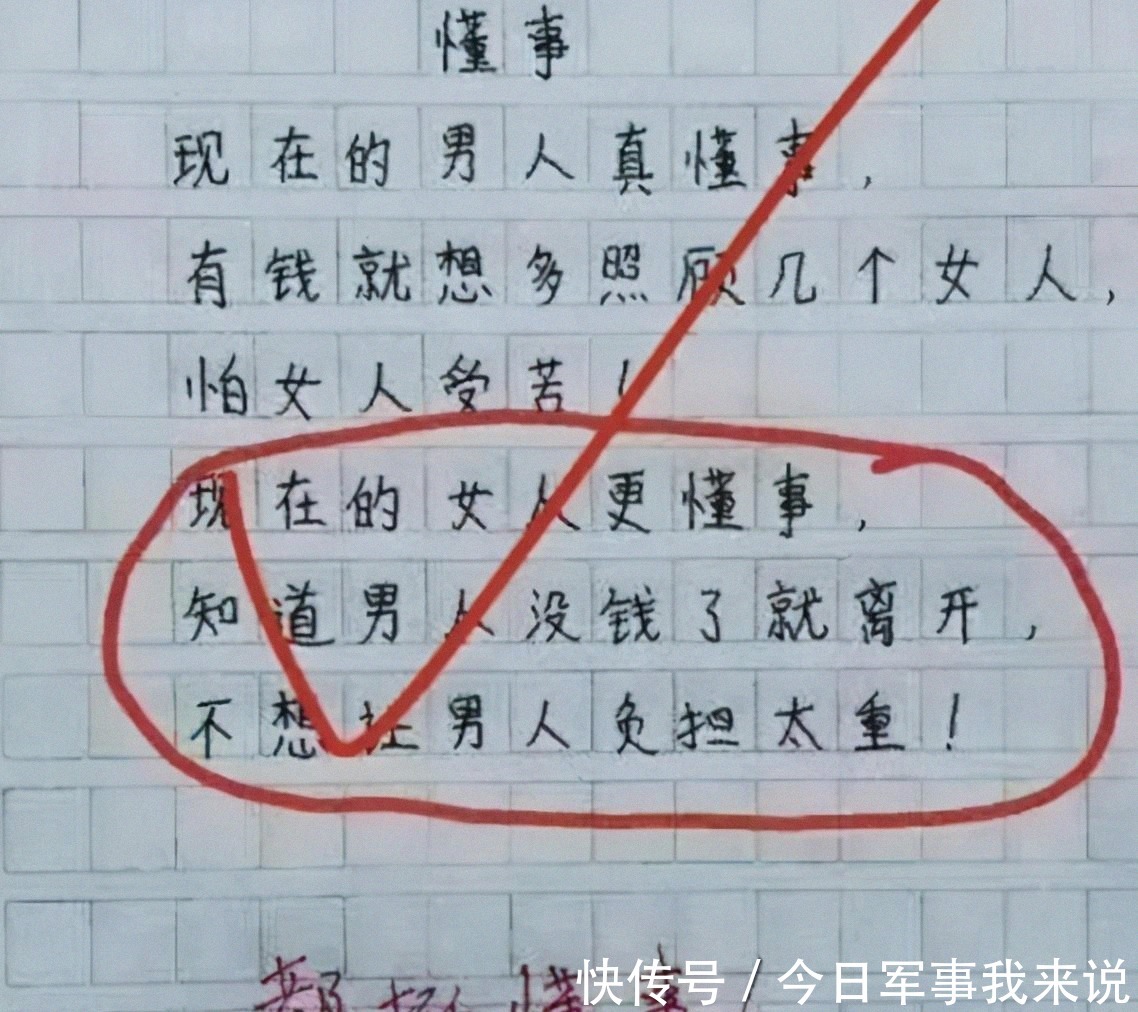 懂事
现在的男人真懂事，
有钱就想多照顾几个女人，
怕女人受苦！
现在的女人更懂事，
知道男人没钱了就离开，
不想让男人负担太重！
都好懂事
快传号 / 今日军事我来说